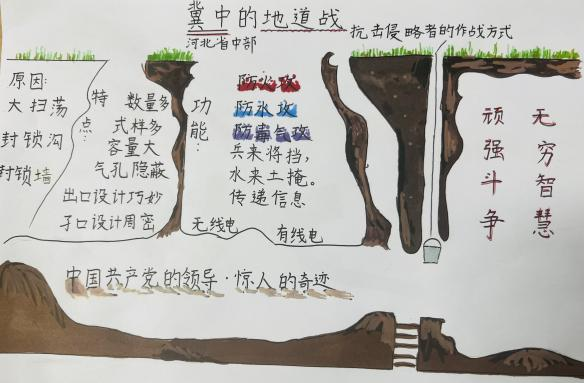 冀中的地道战
河北省中部
抗击侵略者的作战方式
原因:
大扫荡
封锁沟
封锁墙
特点:
数量多
式样多
容量大
气孔隐蔽
出口设计巧妙
孑口设计周密
功能:
防火攻
防水攻
防毒气攻
兵来将挡,
水来土掩。
传递信息
无线电
有线电
顽强斗争
无穷智慧
中国共产党的领导·惊人的奇迹